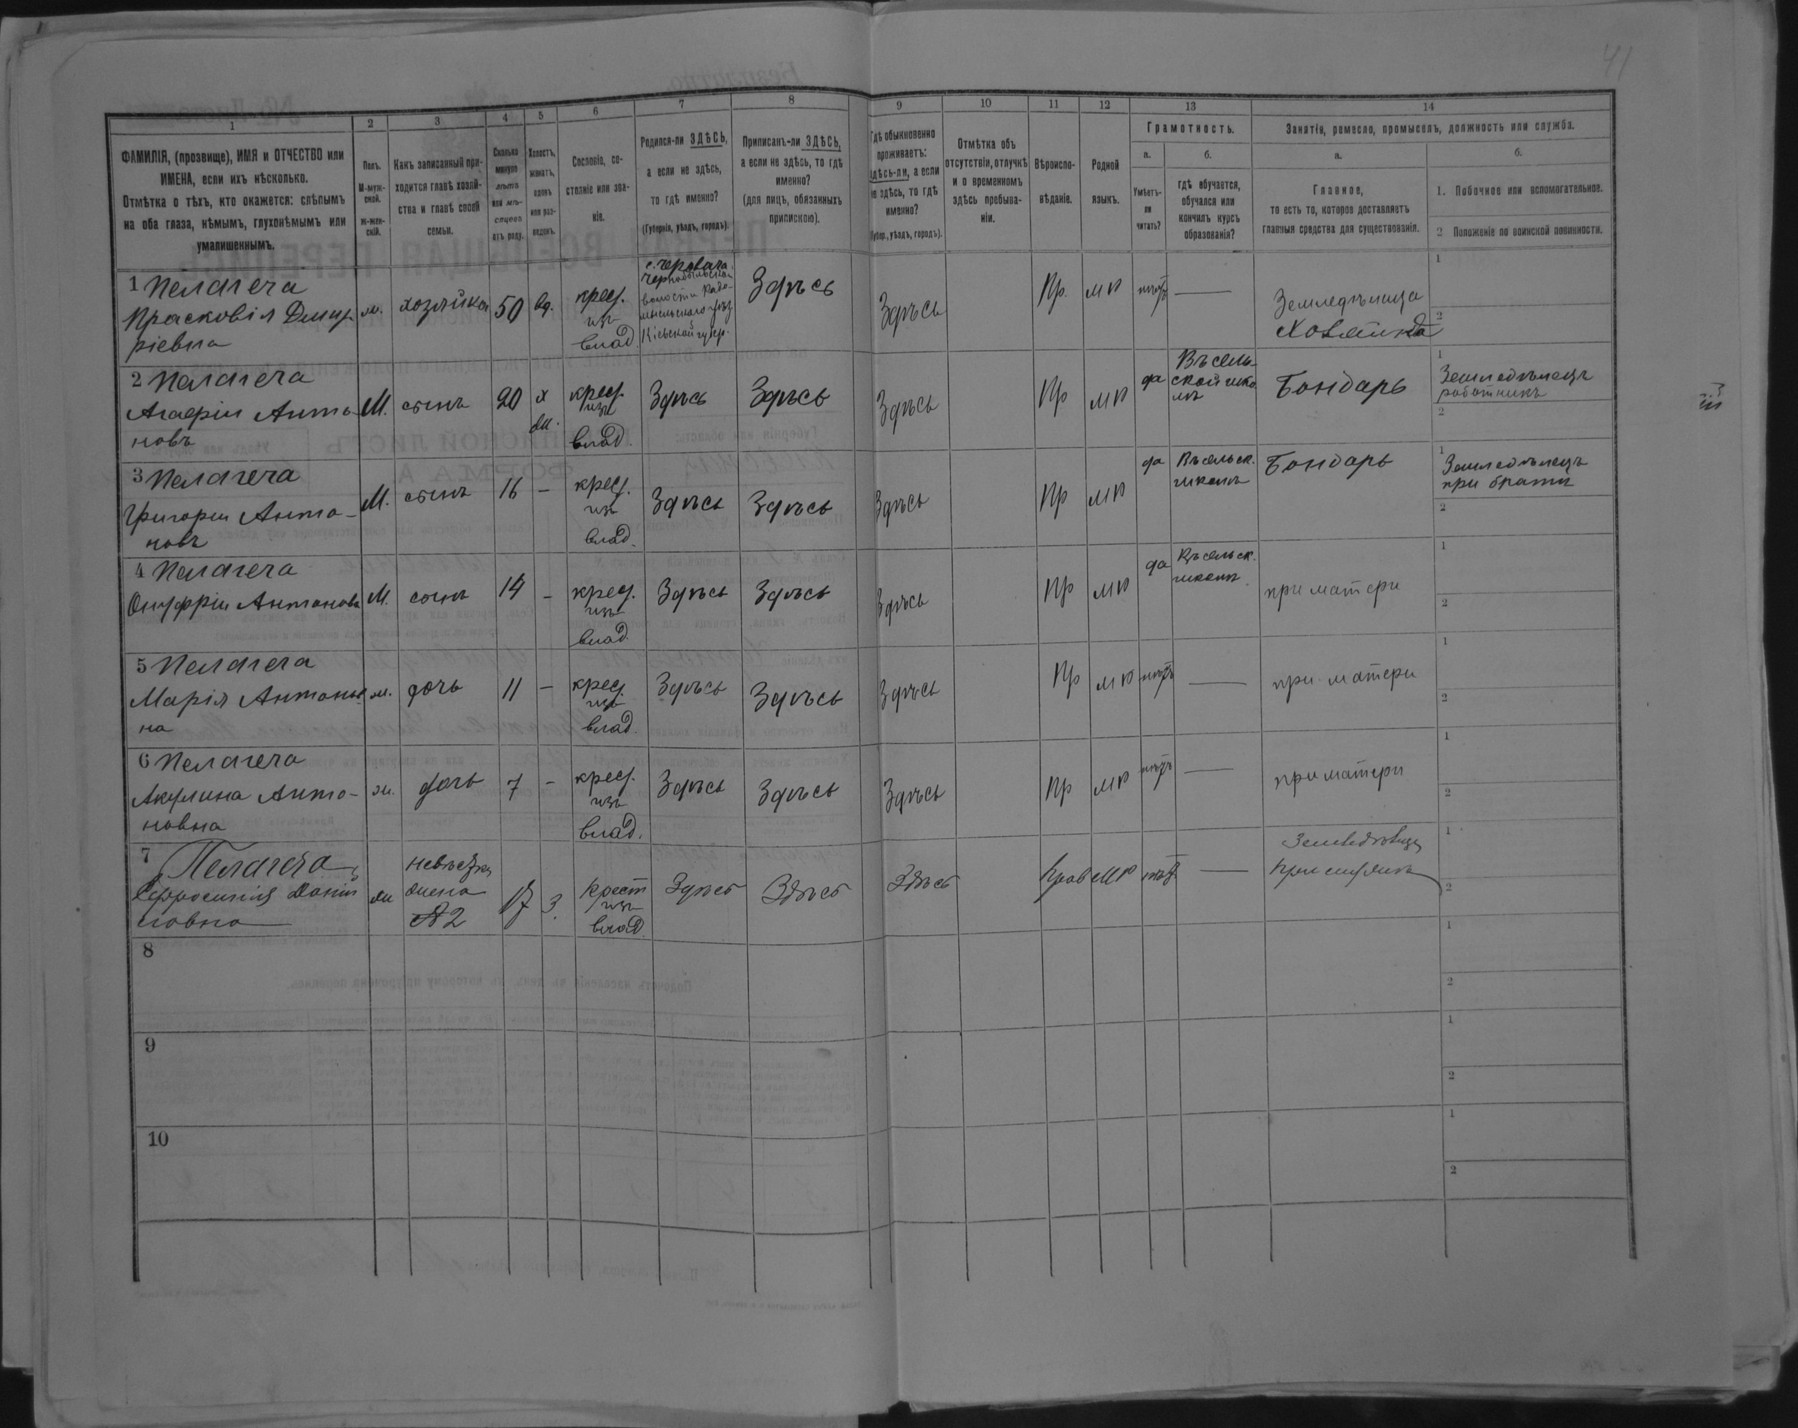 41
1
ФАМИЛІЯ, (прозвище), ИМЯ и ОТЧЕСТВО или
ИМЕНА, если ихъ нѣсколько.
Отмѣтка о тѣхъ, кто окажется: слѣпымъ
на оба глаза, нѣмымъ, глухонѣмымъ или
умалишеннымъ.
2
Полъ.
М-муж-
ской.
Ж-жен-
скій.
3
Какъ записанный при-
ходится главѣ хозяй-
ства и главѣ своей
семьи.
4
Сколько
минуло
лѣтъ
или мѣ-
сяцевъ
отъ роду.
5
Холостъ,
женатъ,
вдовъ
или раз-
веденъ.
6
Сословіе, со-
стояніе или зва-
ніе.
7
Родился-ли ЗДѢСЬ,
а если не здѣсь,
то гдѣ именно?
(Губернія, уѣздъ, городъ).
8
Приписанъ-ли ЗДѢСЬ,
а если не здѣсь, то гдѣ
именно?
(для лицъ, обязанныхъ
припискою).
9
Гдѣ обыкновенно
проживаетъ:
здѣсь-ли, а если
не здѣсь, то гдѣ
именно?
(Губер., уѣздъ, городъ).
10
Отмѣтка объ
отсутствіи, отлучкѣ
и о временномъ
здѣсь пребыва-
ніи.
11
Вѣроиспо-
вѣданіе.
12
Родной
языкъ.
13
Грамотность.
а.
Умѣетъ-
ли
читать?
б.
гдѣ обучается,
обучался или
кончилъ курсъ
образованія?
14
Занятіе, ремесло, промыселъ, должность или служба.
а.
Главное,
то есть то, которое доставляетъ
главныя средства для существованія.
б.
1. Побочное или вспомогательное.
2 Положеніе по воинской повинности.
1 Пелагеча
Прасковія Дмит
ріевна
ж.
хозяйка
50
вд.
крест.
изъ
влад
Чернобыльской
волости Радо-
мысльского уѣзд
Кіевской губер.
Здѣсь
Здѣсь
Пр.
мр
нѣтъ
—
Земледѣлица
Хозяйка
1
2
2 Пелагеча
Антo-
новъ
М.
сынъ
20
ж
крест.
изъ
влад.
Здѣсь
Здѣсь
Здѣсь
Пр
мр
да
Въ сель-
ской шко
лѣ
Бондарь
1
Земледѣлецъ
работникъ
2
3 Пелагеча
Григорій Анто-
новъ
М.
сынъ
16
—
крест.
изъ
влад.
Здѣсь
Здѣсь
Здѣсь
Пр
мр
да
Въ сельск.
школѣ
Бондарь
1
Земледѣлецъ
при братѣ
2
4 Пелагеча
Онуфрій Антоновъ
М.
сынъ
14
—
крест.
изъ
влад.
Здѣсь
Здѣсь
Здѣсь
Пр
мр
да
Въ сельск.
школѣ
при матери
1
2
5 Пелагеча
Марія Антонов
на
ж.
дочь
11
—
крест.
изъ
влад.
Здѣсь
Здѣсь
Здѣсь
Пр
мр
нѣтъ
—
при матери
1
2
6 Пелагеча
Акулина Анто-
новна
ж.
дочь
7
—
крест.
изъ
влад.
Здѣсь
Здѣсь
Здѣсь
Пр
мр
нѣтъ
—
при матери
1
2
7
Пелагеча
Ефросинія Дани
ловна
ж
невѣстка
жена
№2
17
З.
крест
изъ
влад.
Здѣсь
Здѣсь
Здѣсь
Прав
мр
нѣт
—
Земледѣлица
при мужѣ
1
2
8
1
2
9
1
2
10
1
2